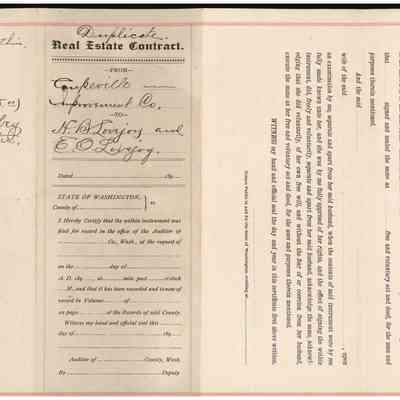 Duplicate
Real Estate Contract.
—FROM—
Coupeville
Improvement Co.
—TO—
H. B. Lovejoy and
E. O. Lovejoy.
Dated 189
STATE OF WASHINGTON,
County of ss
I Hereby Certify that the within instrument was
filed for record in the office of the Auditor of
Co., Wash., at the request of
on the day of
A. D. 189 , at min. past o'clock
M., and that it has been recorded and remains of
record in Volume of
on page of the Records of said County.
Witness my hand and official seal this
day of 189
Auditor of County, Wash.
By Deputy
that signed and sealed the same as free and voluntary act and deed, for the uses and
purposes therein mentioned.
And the said
wife of the said , upon
an examination by me, separate and apart from her said husband, when the contents of said instrument were by me
fully made known unto her, and she was by me fully apprised of her rights, and the effect of signing the within
instrument, did, freely and voluntarily, separate and apart from her said husband, acknowledge the same, acknowl-
edging that she did voluntarily, of her own free will, and without the fear of or coercion from her husband,
execute the same as her free and voluntary act and deed, for the uses and purposes therein mentioned.
WITNESS my hand and official seal the day and year in this certificate first above written.
Notary Public in and for the state of Washington residing at